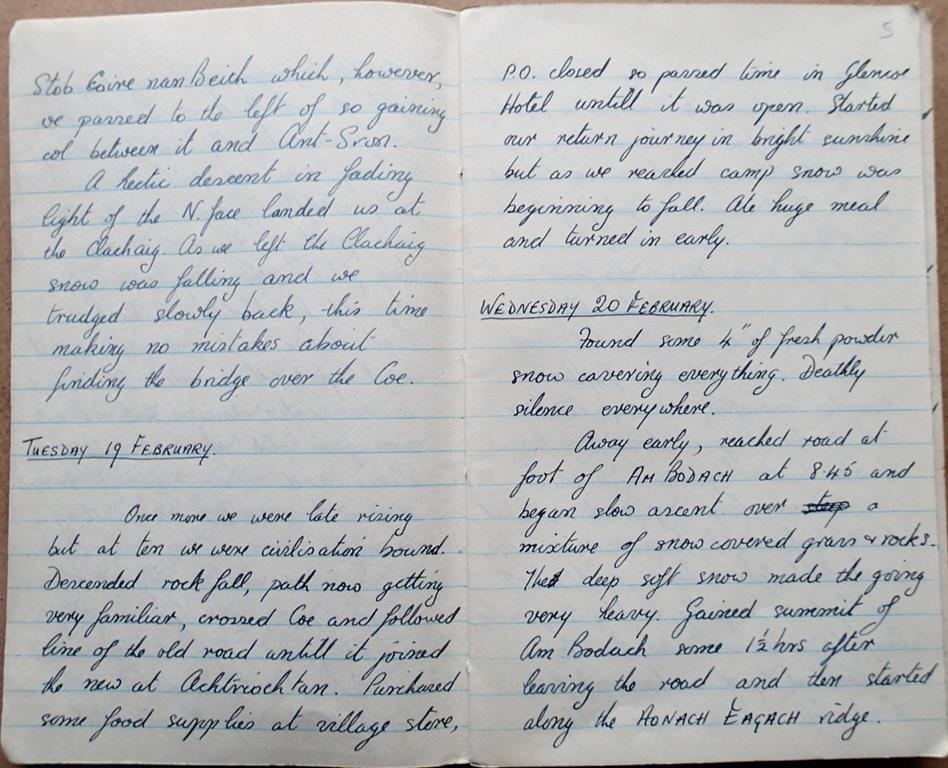 Stob Coire nan Beith which, however,
we passed to the left of so gaining
col between it and Ant-Sron.
A hectic descent in fading
light of the N. face landed us at
the Clachaig. As we left the Clachaig
snow was falling and we
trudged slowly back, this time
making no mistakes about
finding the bridge over the Coe.
TUESDAY 19 FEBRUARY.
Once more we were late rising
but at ten we were civilisation bound.
Descended rock fall, path now getting
very familiar, crossed Coe and followed
line of the old road untill it joined
the new at Achtriochtan. Purchased
some food supplies at village store,
5
P.O. closed so passed time in Glencoe
Hotel untill it was open. Started
our return journey in bright sunshine
but as we reached camp snow was
beginning to fall. Ate huge meal
and turned in early.
WEDNESDAY 20 FEBRUARY.
Found some 4" of fresh powder
snow covering everything. Deathly
silence everywhere.
Away early, reached road at
foot of AM BODACH at 8.45 and
began slow ascent over steep a
mixture of snow covered grass & rocks.
The deep soft snow made the going
very heavy. Gained summit of
Am Bodach some 1½ hrs after
leaving the road and then started
along the AONACH EAGACH ridge.